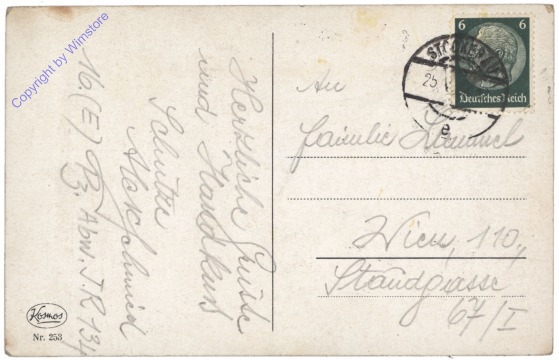 Copyright by Wimstore
Herzliche Grüße
und Handkuß
Schütze
Alois Schmid
16.(E) Pz. Abw. J.R 134
An
Familie
Wien, 110,
Staudgasse
67/I
6 6
Deutsches Reich
25.
e
Kosmos
Nr. 253